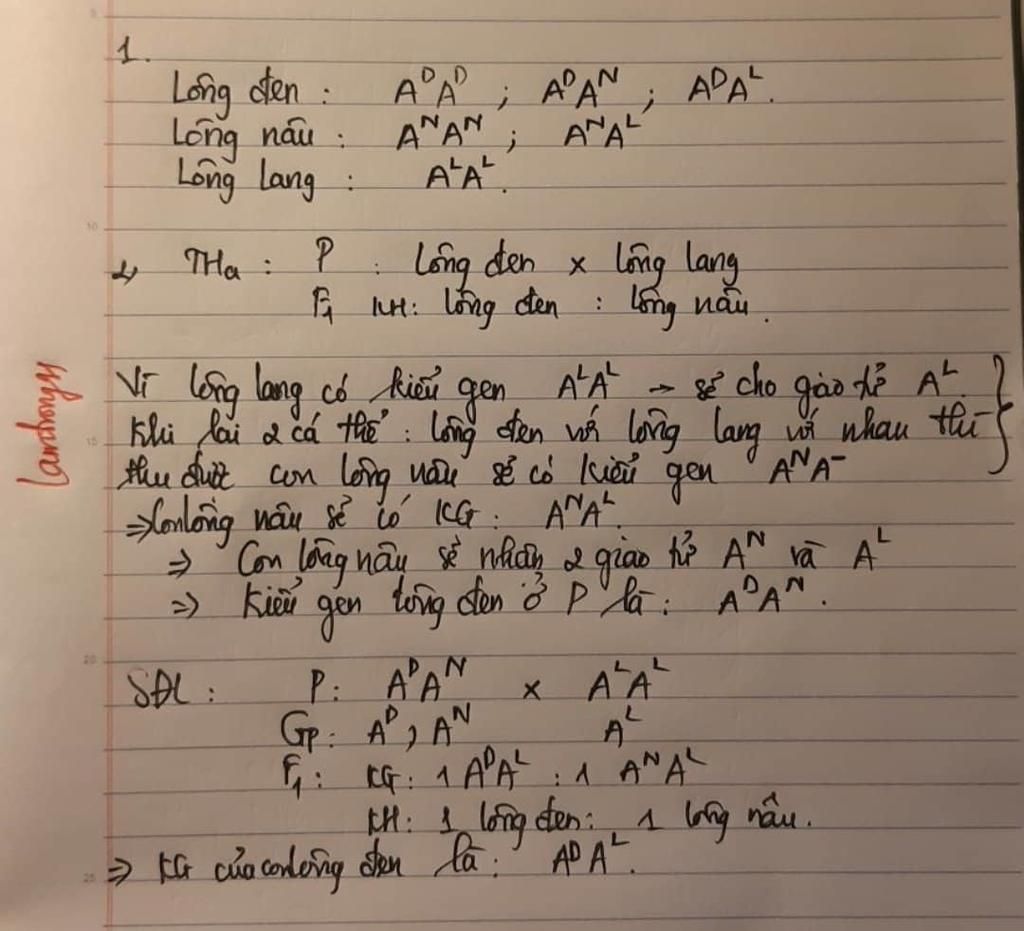 1.
Lông đen : AᴰAᴰ ; AᴰAᴺ ; AᴰAᴸ.
Lông nâu : AᴺAᴺ ; AᴺAᴸ
Lông lang : AᴸAᴸ.
2, THa : P : lông đen x lông lang
F₁ KH: lông đen : lông nâu.
Vì lông lang có kiểu gen AᴸAᴸ → sẽ cho giao tử Aᴸ.
Khi lai 2 cá thể : lông đen với lông lang với nhau thì
thu được con lông nâu sẽ có kiểu gen AᴺA⁻
⇒ Con lông nâu sẽ có KG: AᴺAᴸ.
⇒ Con lông nâu sẽ nhận 2 giao tử Aᴺ và Aᴸ
⇒ Kiểu gen lông đen ở P là: AᴰAᴺ.
SĐL : P: AᴰAᴺ x AᴸAᴸ
Gp: Aᴰ, Aᴺ Aᴸ
F₁: KG: 1 AᴰAᴸ : 1 AᴺAᴸ
KH: 1 lông đen: 1 lông nâu.
⇒ KG của con lông đen là: AᴰAᴸ.